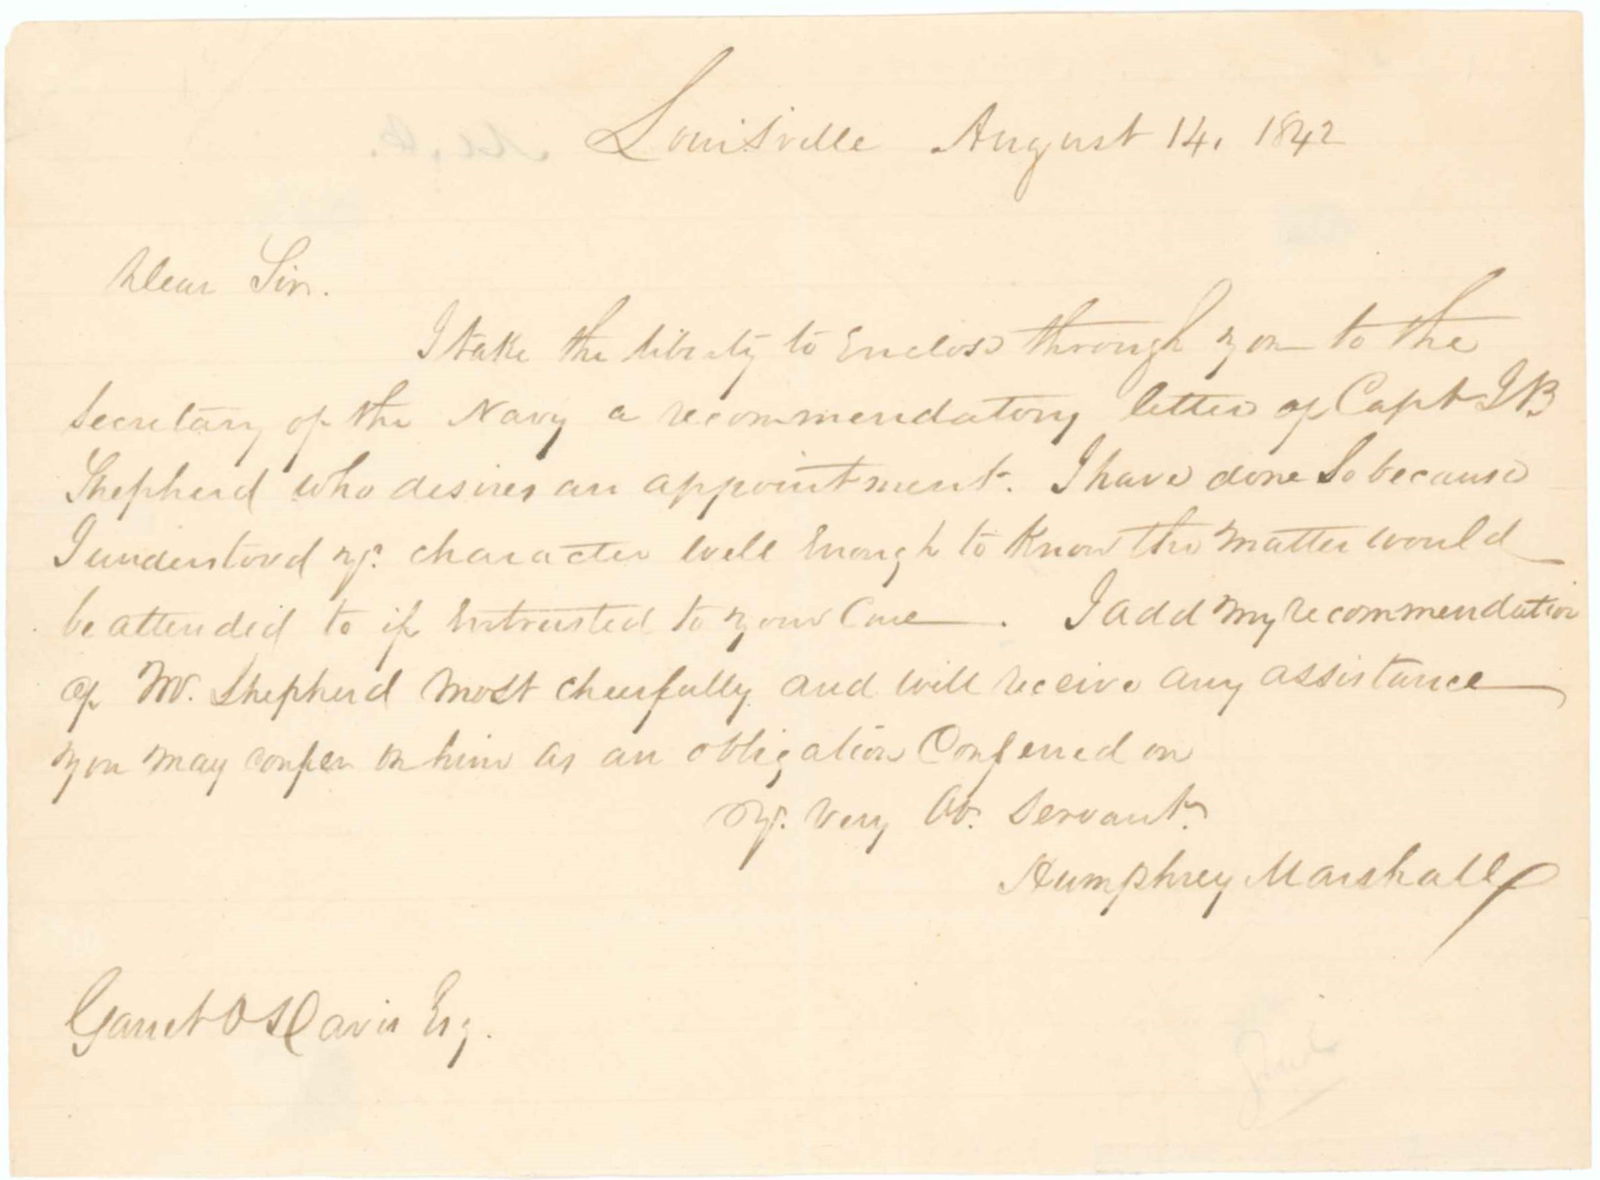 Louisville August 14. 1842
Dear Sir.
I take the liberty to Enclose through you to the
Secretary of the Navy a recommendatory letter of Capt J B
Shepherd who desires an appointment. I have done So because
I understood yr. character well Enough to Know the matter would
be attended to if Entrusted to your Care. I add my recommendation
of Mr. Shepherd most cheerfully and will receive any assistance
you may confer on him as an obligation Conferred on
Yr. very Ob. Servant.
Humphrey Marshall
Garret Davis Esq.